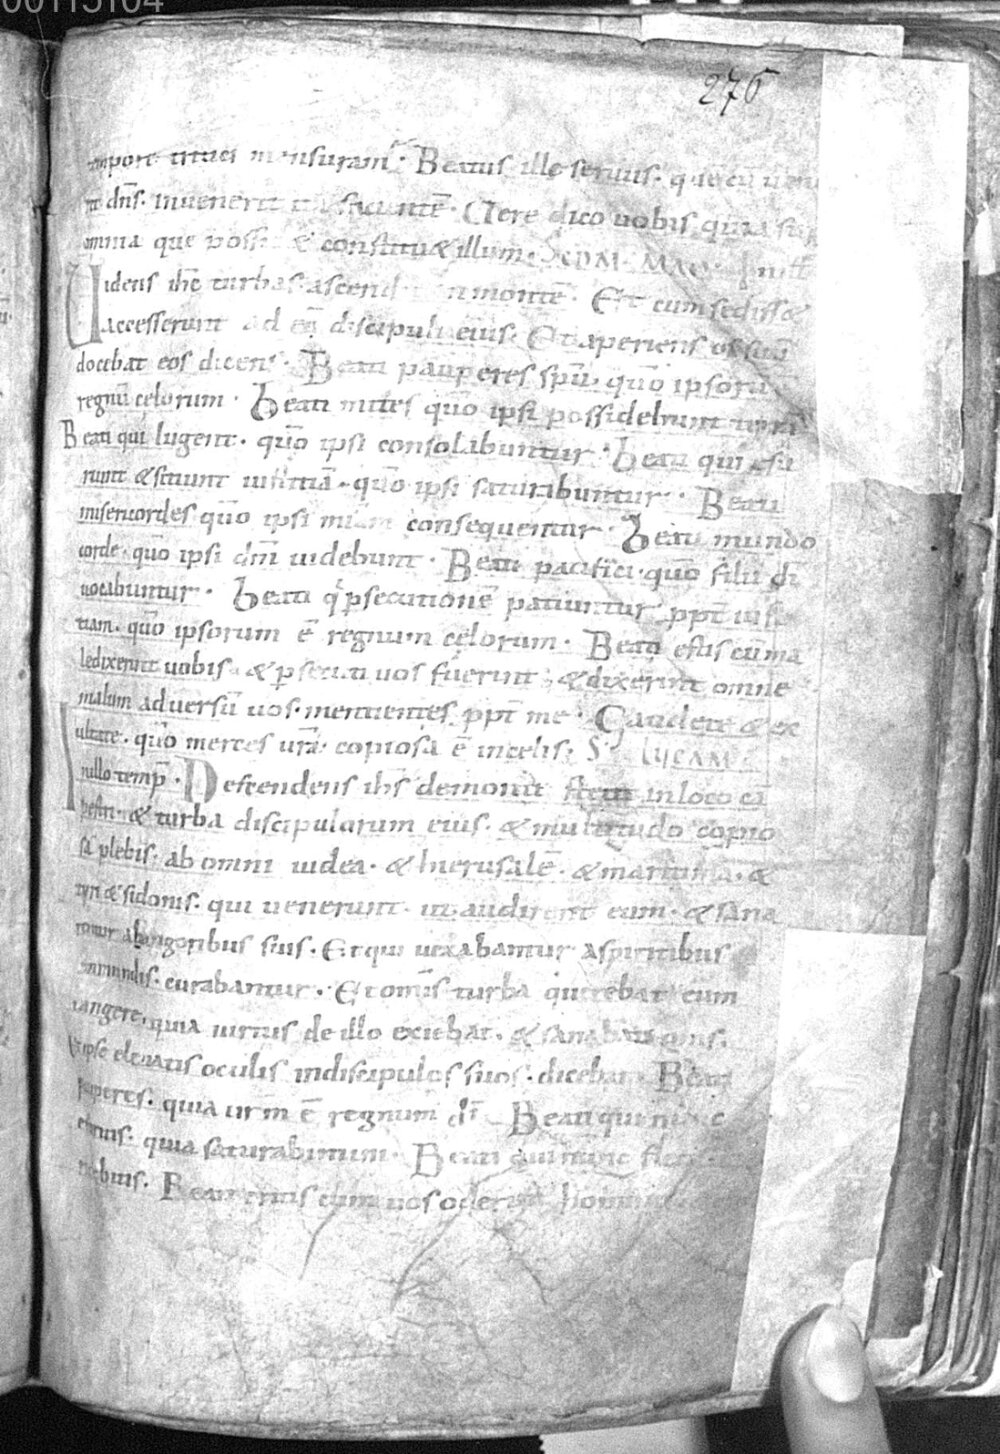 00115104
276
tempore tritici mensuram. Beatus ille seruus. quē cū uene
rit dn̄s. inuenerit ita facientē. Uere dico uobis quia sup
omnia que possid& constitu& illum. SCDM. MAT.
Uidens ih̄c turbas. ascendit in montē. Et cum sediss&
accesserunt ad eū discipuli eius. Et aperiens os suū
docebat eos dicens. Beati pauperes spū. quō ipsorū
regnū celorum. Beati mites quō ipsi possidebunt terrā
Beati qui lugent. quō ipsi consolabuntur. Beati qui esu
riunt & sitiunt iustitiā. quō ipsi saturabuntur. Beati
misericordes quō ipsi miām consequentur. Beati mundo
corde. quō ipsi dm̄ uidebunt. Beati pacifici. quō filii dī
uocabuntur. Beati q̇ psecutionē patiuntur ppt̄ iusti
tiam. quō ipsorum ē regnum celorum. Beati estis cū ma
ledixerint uobis. & psecuti uos fuerint. & dixerint omne
malum aduersū uos. mentientes ppt̄ me. Gaudete & ex
ultate. quō merces ur̄a copiosa ē in celis. S. LUCAM
In illo temp̄. Descendens ih̄s de monte stetit in loco ca
pestri. & turba discipulorum eius. & multitudo copio
sa plebis. ab omni iudea. & hierusalē. & maritima. &
tyri & sidonis. qui uenerunt. ut audirent eum. & sana
rentur a languoribus suis. Et qui uexabantur a spiritibus
inmundis. curabantur. Et omīs turba querebat eum
tangere, quia uirtus de illo exiebat. & sanabat omīs.
Et ipse eleuatis oculis in discipulos suos. dicebat. Beati
pauperes. quia ur̄m ē regnum dī. Beati qui nunc
esuritis. quia saturabimini. Beati qui nunc fletis.
ridebitis. Beati eritis cum uos oderint homines